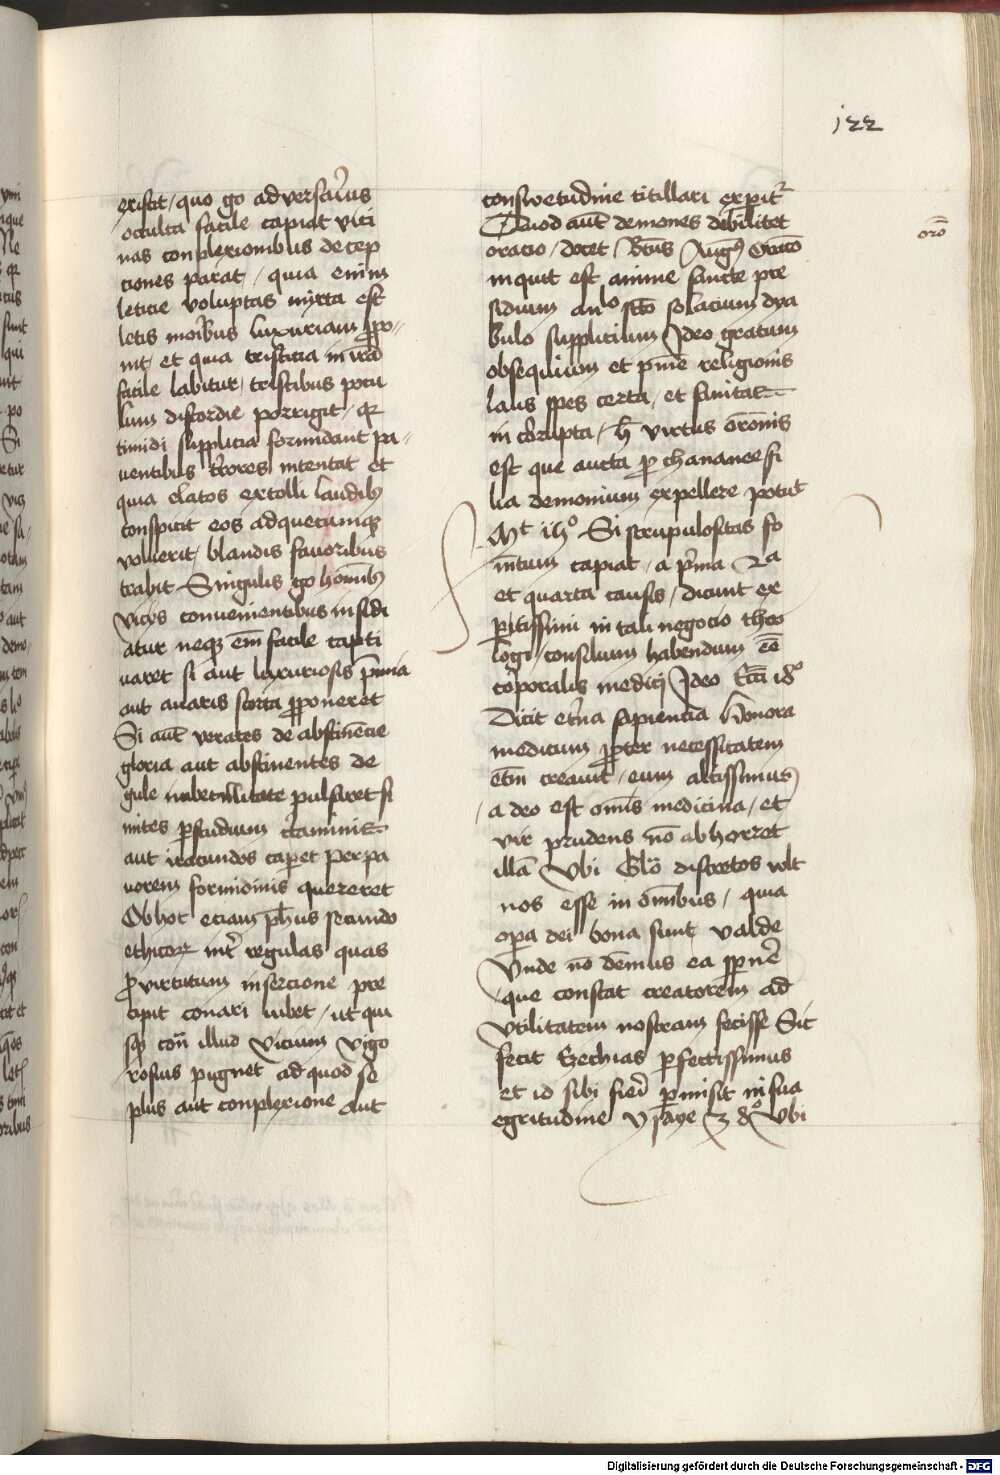 122
existit / quo go adversarius
occulta facile capiat vici
nas complexionibus decep
ciones parat / quia enim
leticie voluptas iuncta est
letis moribus luxuriam ppo-
nit / et quia tristicia in iram
facile labitur / tristibus pocu
lum discordie porrigit / q2
timidi supplicia formidant pa-
uentibus terrores intentat et
quia elatos extolli laudibus
conspicit eos ad quecumque
voluerit / blandis fauoribus
trahit Singulis go hominibus
vicijs convenientibus insidi
atur neque em facile capti
uaret si aut luxuriosis premia
aut auaris scorta proponeret
Si aut voraces de abstinencie
gloria aut abstinentes de
gule imbecillitate pulsaret si
mites per studium certaminis
aut iracundos caperet per pa
uorem formidinis quereret
Ob hoc eciam phus secundo
ethicor inter regulas quas
pro virtutum insercione pre
cipit conari iubet / ut qui
sque contra illud vicium vigo
rosius pugnet ad quod se
plus aut complexione aut
consuetudine titillari experitur
Quod aut demones debilitet
oracio / docet / Btus Aug9 Oratio
inquit est anime sancte pre
sidium angelo sancto solacium dya
bulo supplicium Ideo gratum
obsequium et perhenne religionis
laus spes certa / et sanitas
incorrupta / hec virtus oronis
est que aucta per chananee fi
lia demonium expellere potuit
Mt 15o Si scrupulositas fo
mentum capiat / a prima 2a
et quarta causis / dicunt ex
pertissimi in tali negocio theo
logi / consilium habendum esse
corporalis medici Ideo Ecci 38o
Dicit eterna sapiencia Honora
medicum propter necessitatem
etenim creauit / eum altissimus
/ a deo est omnis medicina / et
vir prudens non abhorret
illam Vbi Glo discretos volt
nos esse in omnibus / quia
opera dei bona sunt valde
Vnde non demus ea spernere
/ que constat creatorem ad
vtilitatem nostram fecisse Sic
fecit Ezechias perfectissimus
et id sibi fieri permisit in sua
egritudine ysaye 38o Vbi
oro
Digitalisierung gefördert durch die Deutsche Forschungsgemeinschaft - DFG